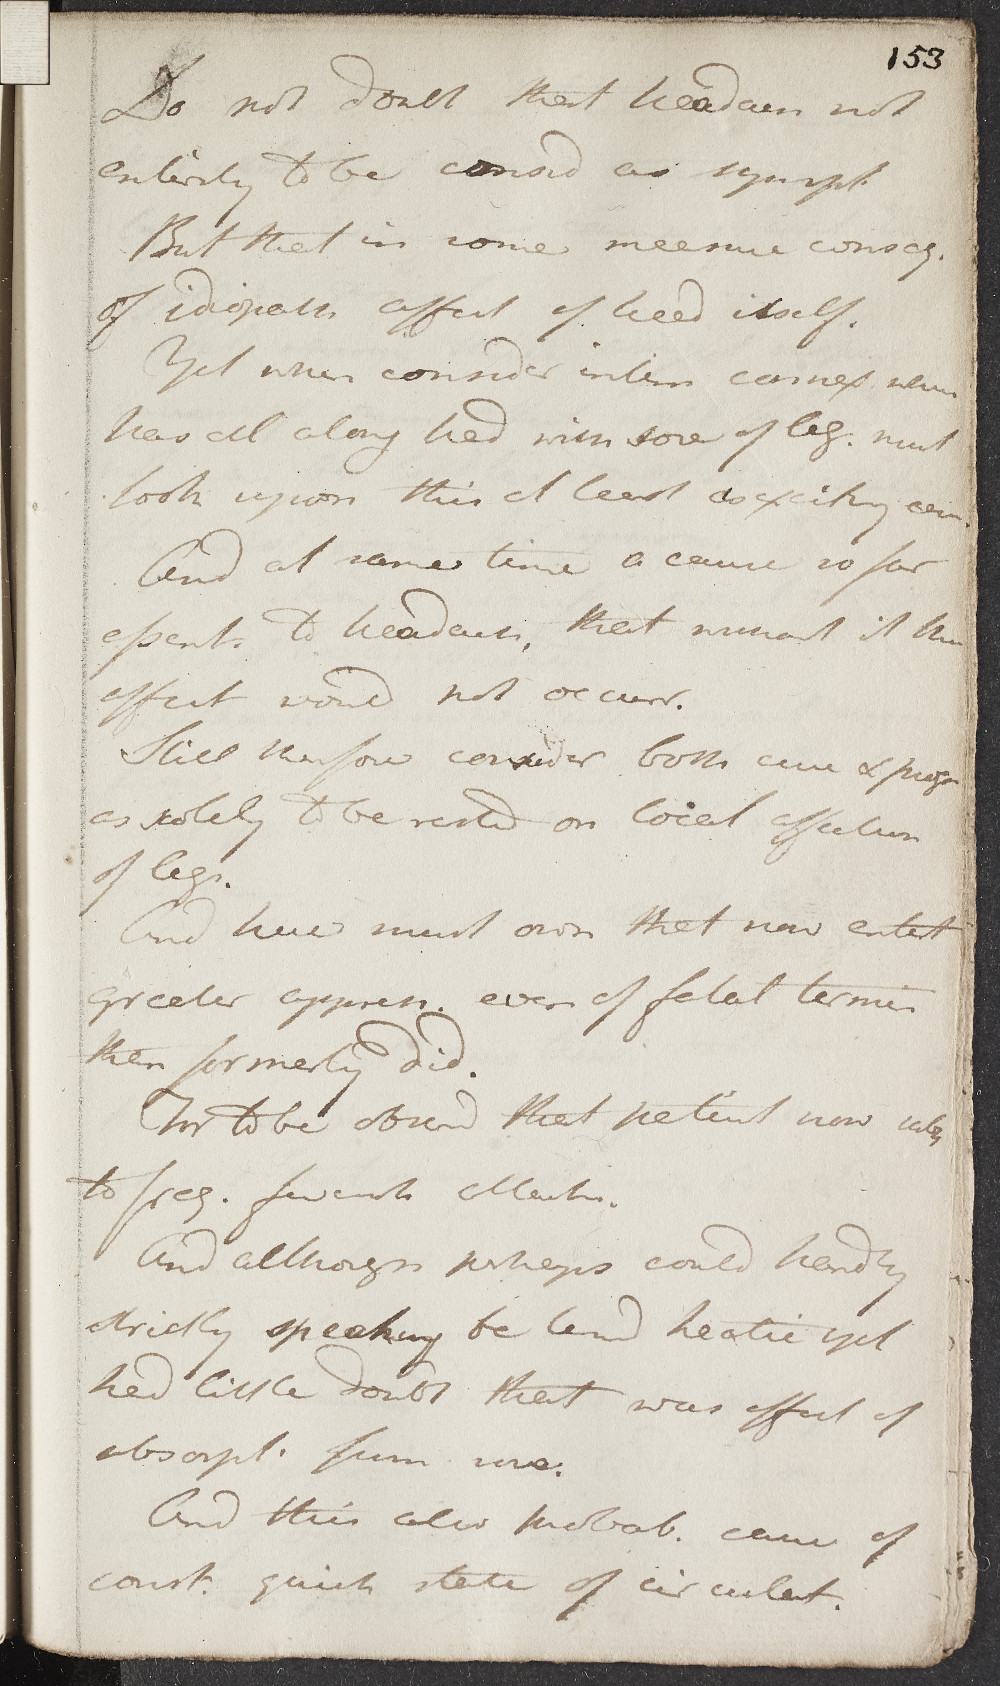 153
Do not doubt that headach not
entirely to be consid as sympt.
But that in some measure conseq.
of idiopath affect of head itself.
Yet when consider intim connex. when
has all along had with sore of leg. must
look upon this at least as exciting cau.
And at same time a cause so far
essent. to headach, that without it
effect would not occurr.
Still therefore consider both cure & progn
as solely to be rested on local affection
of legs.
And here must own that now entert
greater appreh. even of fatal termin
than formerly did.
For to be observd that patient now
to freq. feverish attacks.
And although perhaps could hardly
strictly speaking be termd hectic yet
had little doubt that was effect of
absorpt. from sore.
And this also probab. cause of
const. quick state of circulat.